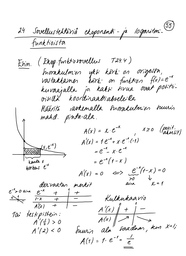 35
2.4 Sovellustehtäviä eksponentti- ja logaritmi-
funktioista
Esim. ( Eksp.funktiosovellus T284)
Suorakulmion yksi kärki on origossa,
vastakkainen kärki on funktion f(x) = e⁻ˣ
kuvaajalla ja kaksi sivua ovat positii-
visilla koordinaattiakseleilla.
Määritä suorakulmion suurin
mahd. pinta-ala.
A(x) = x·e⁻ˣ, x>0
A'(x) = 1·e⁻ˣ + x·e⁻ˣ·(-1)
= e⁻ˣ - x e⁻ˣ
= e⁻ˣ(1-x)
A'(x) = 0 ⇔ e⁻ˣ(1-x) = 0
x=1
derivaatan merkit
Kulkukaavio
Tai testipistein:
A'(½) > 0
A'(2) < 0
A'(x) + -
A(x)
Suurin ala saadaan, kun x=1,
A(1) = 1·e⁻¹ = 1/e